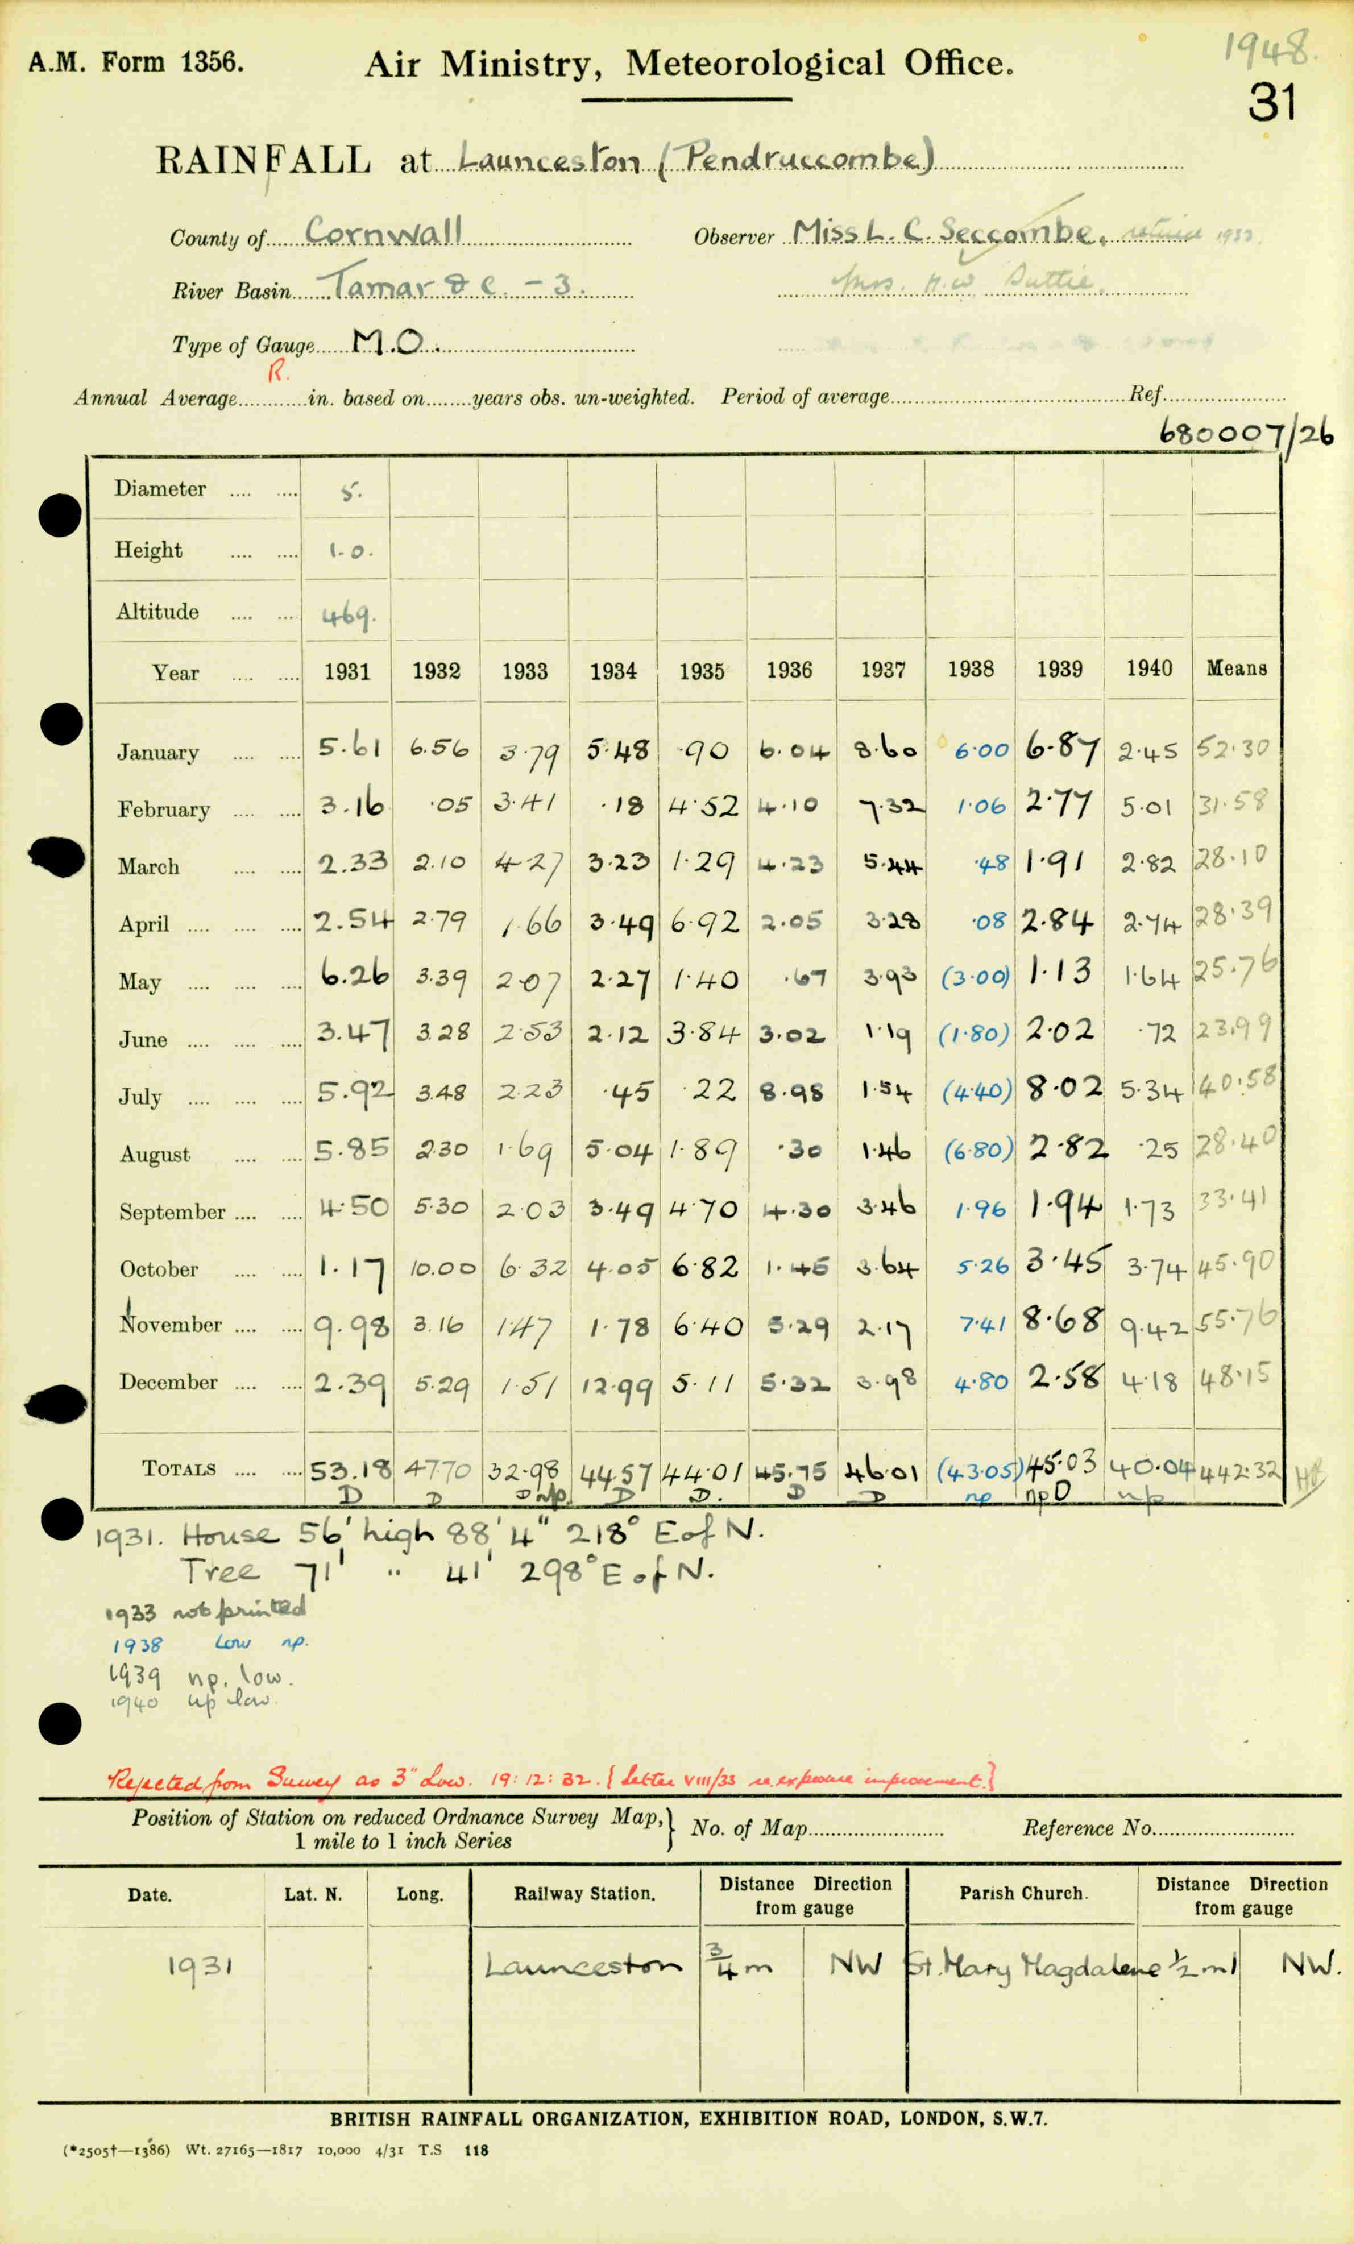 1948.
A.M. Form 1356. Air Ministry, Meteorological Office.
31
RAINFALL at Launceston (Pendruccombe)
County of Cornwall Observer Miss L. C. Seccombe, retired 1933.
River Basin Tamar &c. - 3. Mrs. H.W.
Type of Gauge M.O.
R.
Annual Average in. based on years obs. un-weighted. Period of average Ref.
680007/26
Diameter .... .... 5.
Height .... .... 1-0.
Altitude .... .... 469.
Year .... .... 1931 1932 1933 1934 1935 1936 1937 1938 1939 1940 Means
January .... .... 5.61 6.56 3.79 5.48 .90 6.04 8.60 6.00 6.87 2.45 52.30
February .... .... 3.16 .05 3.41 .18 4.52 4.10 7.32 1.06 2.77 5.01 31.58
March .... .... 2.33 2.10 4.27 3.23 1.29 4.23 5.44 .48 1.91 2.82 28.10
April .... .... .... 2.54 2.79 1.66 3.49 6.92 2.05 3.28 .08 2.84 2.74 28.39
May .... .... .... 6.26 3.39 2.07 2.27 1.40 .67 3.93 (3.00) 1.13 1.64 25.76
June .... .... .... 3.47 3.28 2.53 2.12 3.84 3.02 1.19 (1.80) 2.02 .72 23.99
July .... .... .... 5.92 3.48 2.23 .45 .22 8.98 1.54 (4.40) 8.02 5.34 40.58
August .... .... 5.85 2.30 1.69 5.04 1.89 .30 1.46 (6.80) 2.82 .25 28.40
September .... .... 4.50 5.30 2.03 3.49 4.70 4.30 3.46 1.96 1.94 1.73 33.41
October .... .... 1.17 10.00 6.32 4.05 6.82 1.45 3.64 5.26 3.45 3.74 45.90
November .... .... 9.98 3.16 1.47 1.78 6.40 5.29 2.17 7.41 8.68 9.42 55.76
December .... .... 2.39 5.29 1.51 12.99 5.11 5.32 3.98 4.80 2.58 4.18 48.15
TOTALS .... .... 53.18 47.70 32.98 44.57 44.01 45.75 46.01 (43.05) 45.03 40.04 442.32
D D D np. D D. D D np np D np
1931. House 56' high 88' 4" 218° E of N.
Tree 71' " 41' 298° E of N.
1933 not printed
1938 Low np.
1939 np. low.
1940 np low.
Rejected from Survey as 3" Low. 19:12:32. {Letter VIII/33 re exposure improvement.}
Position of Station on reduced Ordnance Survey Map,} No. of Map Reference No.
1 mile to 1 inch Series
Date. Lat. N. Long. Railway Station. Distance Direction from gauge Parish Church. Distance Direction from gauge
1931 Launceston 3/4 m NW St. Mary Magdalene 1/2 ml NW.
BRITISH RAINFALL ORGANIZATION, EXHIBITION ROAD, LONDON, S.W.7.
(*2505†—1386) Wt. 27165—1817 10,000 4/31 T.S 118